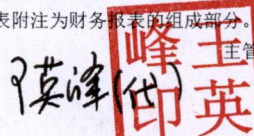 表附注为财务报表的组成部分。
主管
王英峰(代)
王英峰印